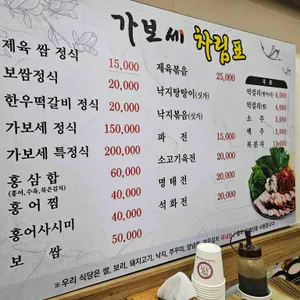 가보세 차림표
제육 쌈 정식 15,000
보쌈정식 20,000
한우떡갈비 정식 20,000
가보세 정식 150,000
가보세 특정식 200,000
홍 삼 합 60,000
(홍어,수육,묵은김치)
홍 어 찜 40,000
홍어사시미 40,000
보 쌈 50,000
제육볶음 25,000
낙지탕탕이(싯가)
낙지볶음(싯가)
파 전 15,000
소고기육전 20,000
명태전 20,000
석화전 20,000
막걸리
막걸리
소 주
맥 주
복분자
※우리 식당은 쌀, 보리, 돼지고기, 낙지, 쭈꾸미,